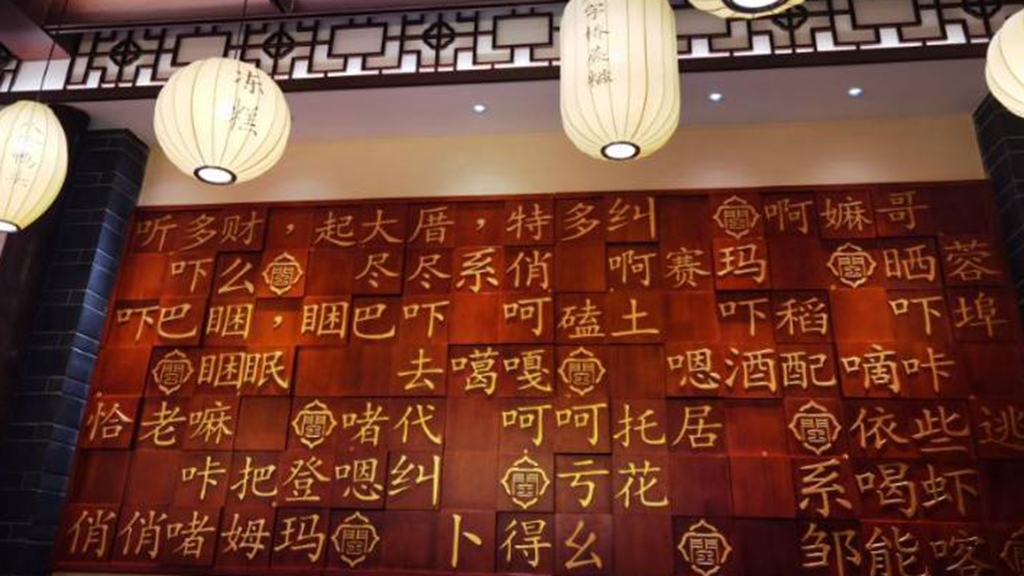 冻糕
听多财，起大厝，特多纠 啊嫲哥
吓么 尽尽系俏 啊赛玛 晒蓉
吓巴睏，睏巴吓 呵磕土 吓稻 吓埠
睏眠 去噶嘎 嗯酒配 嘀咔
恰老嘛 啫代 呵呵托居 依些逃
咔把登嗯纠 亏花 系喝虾
俏俏啫姆玛 卜得幺 邹能喀